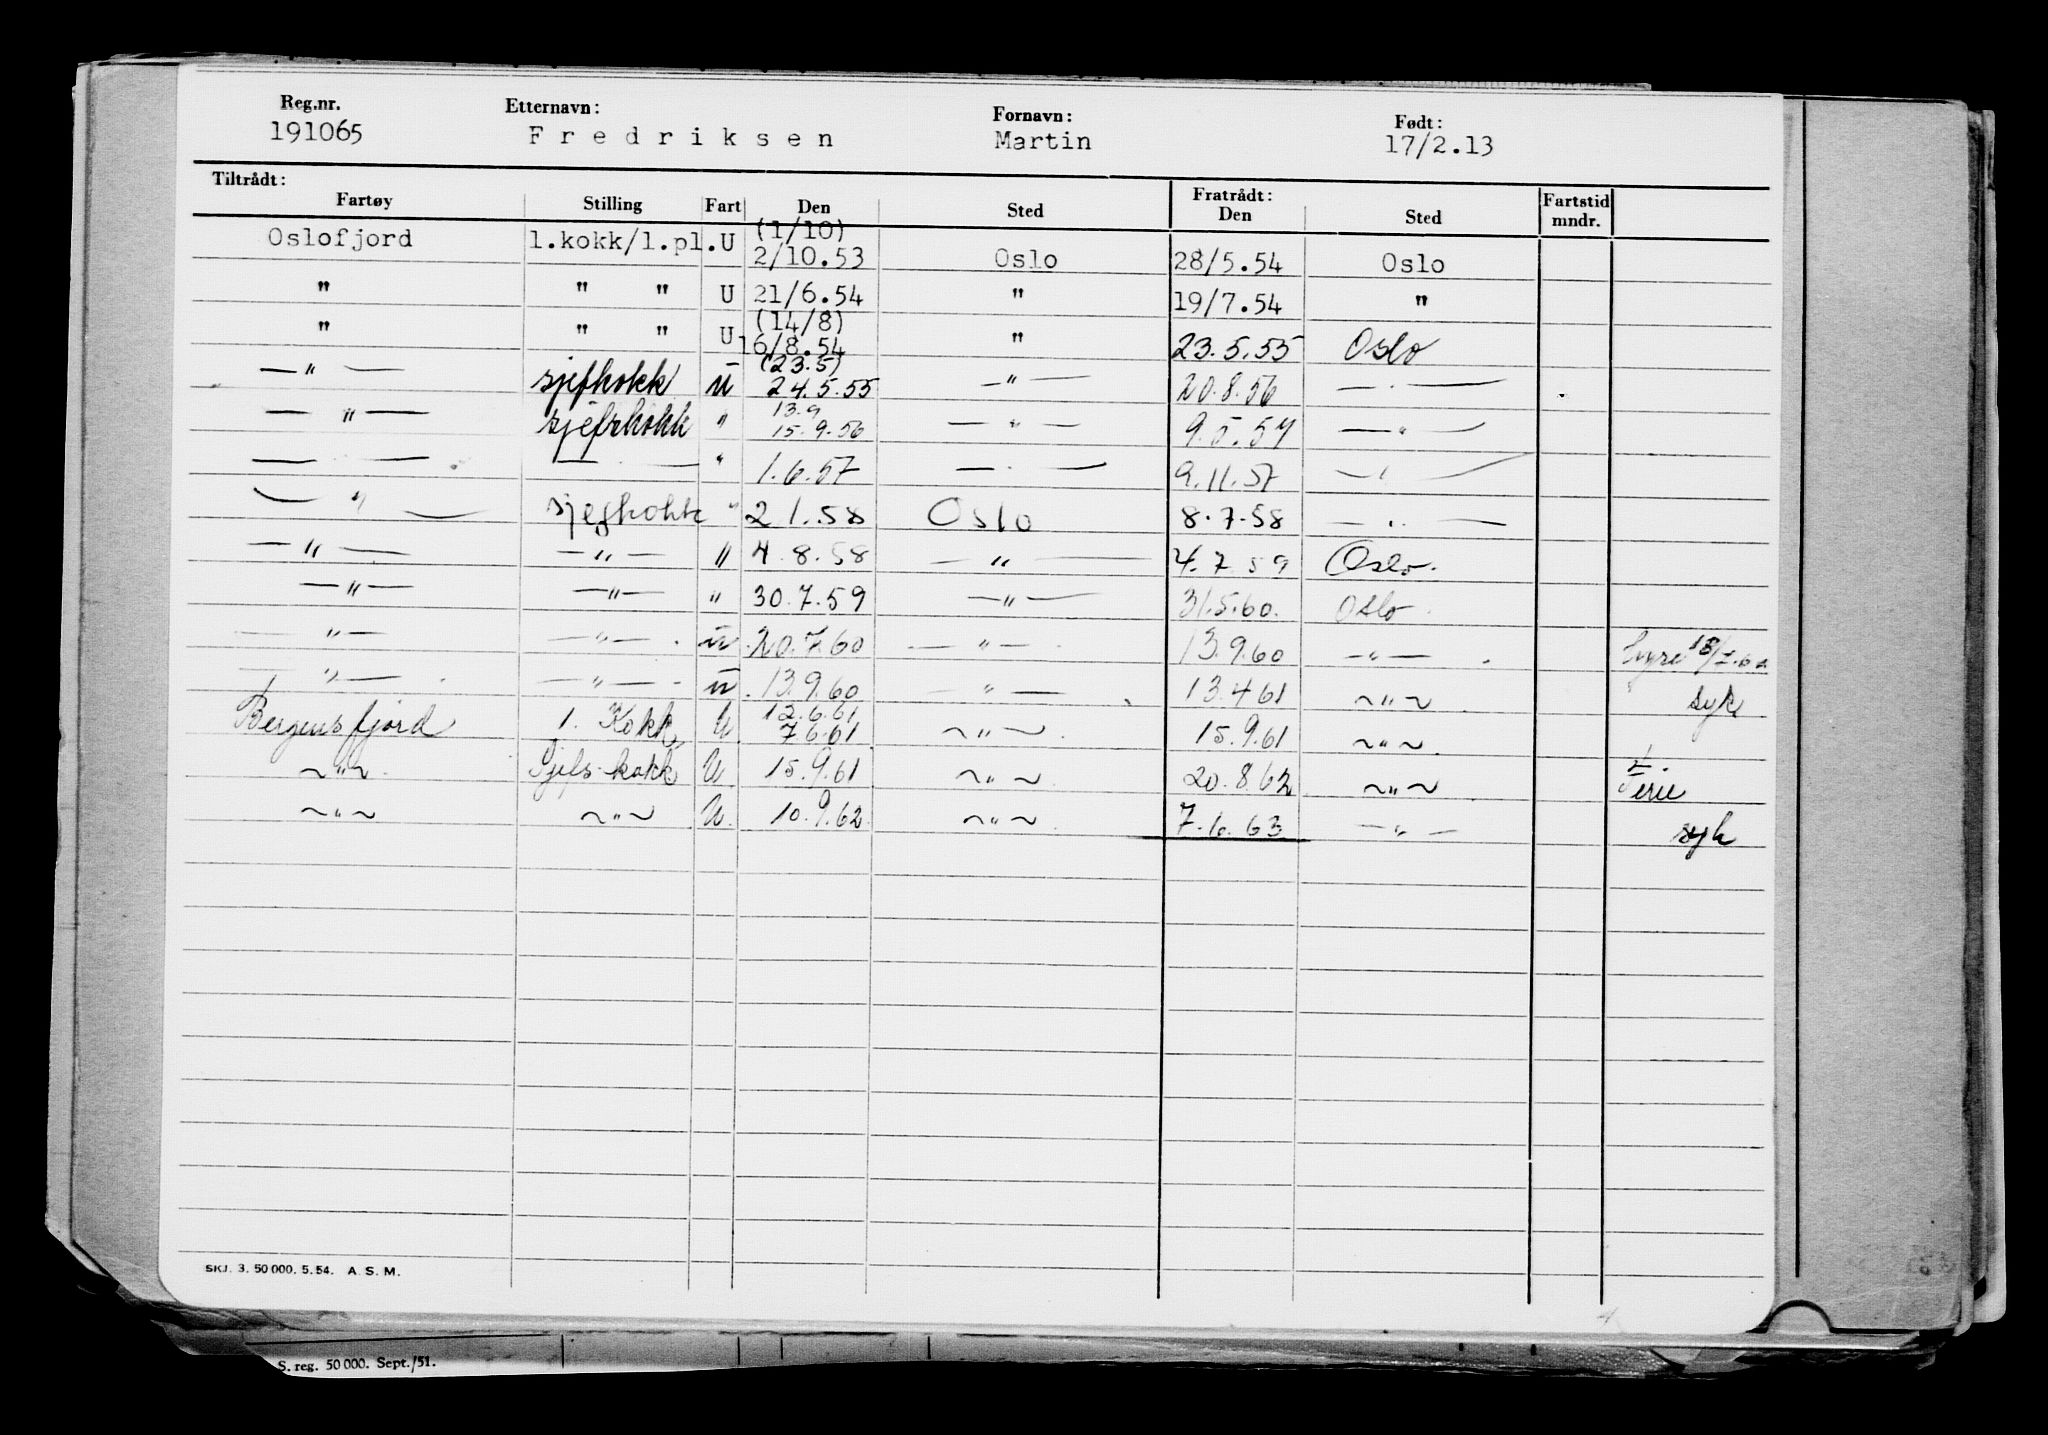 Reg.nr. Etternavn: Fornavn: Født:
191065 Fredriksen Martin 17/2.13
Tiltrådt: Fratrådt:
Fartøy Stilling Fart Den Sted Den Sted Fartstid mndr.
Oslofjord 1.kokk/1.pl. U (1/10) 2/10.53 Oslo 28/5.54 Oslo
" " " U 21/6.54 " 19/7.54 "
" " " U (14/8) 16/8.54 " 23.5.55 Oslo
—"— sjefkokk U (23.5) 24.5.55 —"— 20.8.56 —"—
—"— sjefskokk " 13.9 15.9.56 —"— 9.5.57 —"—
—"— —"— " 1.6.57 —"— 9.11.57 —"—
—"— sjefkokk " 2 1.58 Oslo 8.7.58 —"—
—"— —"— " 4.8.58 —"— 4.7 59 Oslo.
—"— —"— " 30.7.59 —"— 31.5.60. Oslo.
—"— —"— U 20.7.60 —"— 13.9.60 —"—
—"— —"— U 13.9.60 —"— 13.4 61 ~"~ " syk
Bergensfjord 1. Kokk U 12.6.61 7 6.61 ~"~ 15.9.61 ~"~
~"~ Sjefs-kokk U 15.9.61 ~"~ 20.8.62 ~"~ Ferie
~"~ ~"~ U 10.9.62 ~"~ 7.6.63 —"— syk
SKJ. 3. 50 000. 5. 54. A. S. M.
S. reg. 50 000. Sept./51.